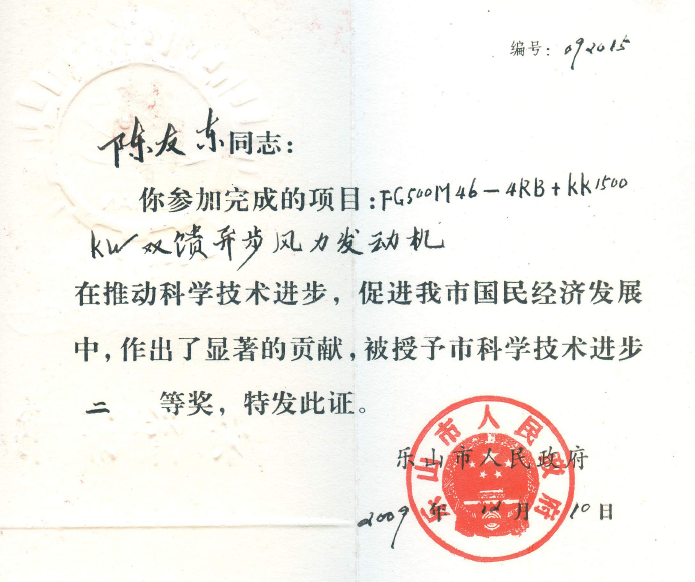 编号：092015
陈友东同志：
你参加完成的项目：FG500M46-4RB+KK1500
KW双馈异步风力发动机
在推动科学技术进步，促进我市国民经济发展
中，作出了显著的贡献，被授予市科学技术进步
二 等奖，特发此证。
乐山市人民政府
乐山市人民政府
2009年12月10日